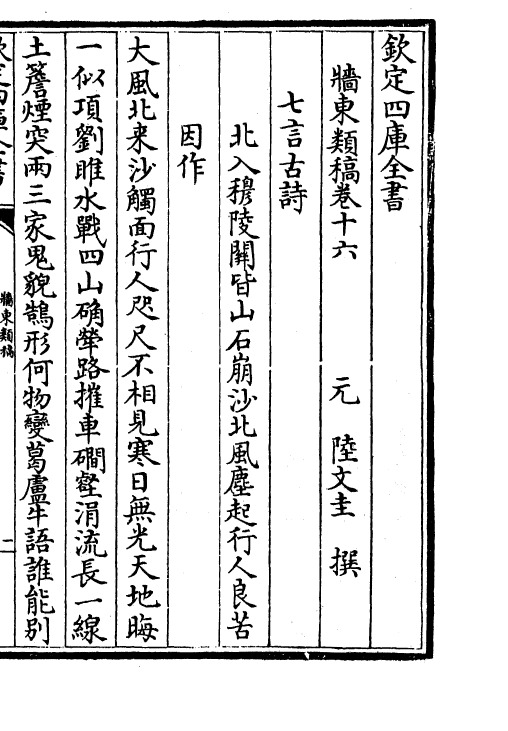 欽定四庫全書
牆東類稿卷十六　元　陸文圭　撰
七言古詩
北入穆陵關皆山石崩沙北風塵起行人良苦
因作
大風北来沙觸面行人咫尺不相見寒日無光天地晦
一似項劉睢水戰四山确犖路摧車磵壑涓流長一線
土簷煙突兩三家鬼貌鵠形何物變葛盧牛語誰能别
牆東類稿